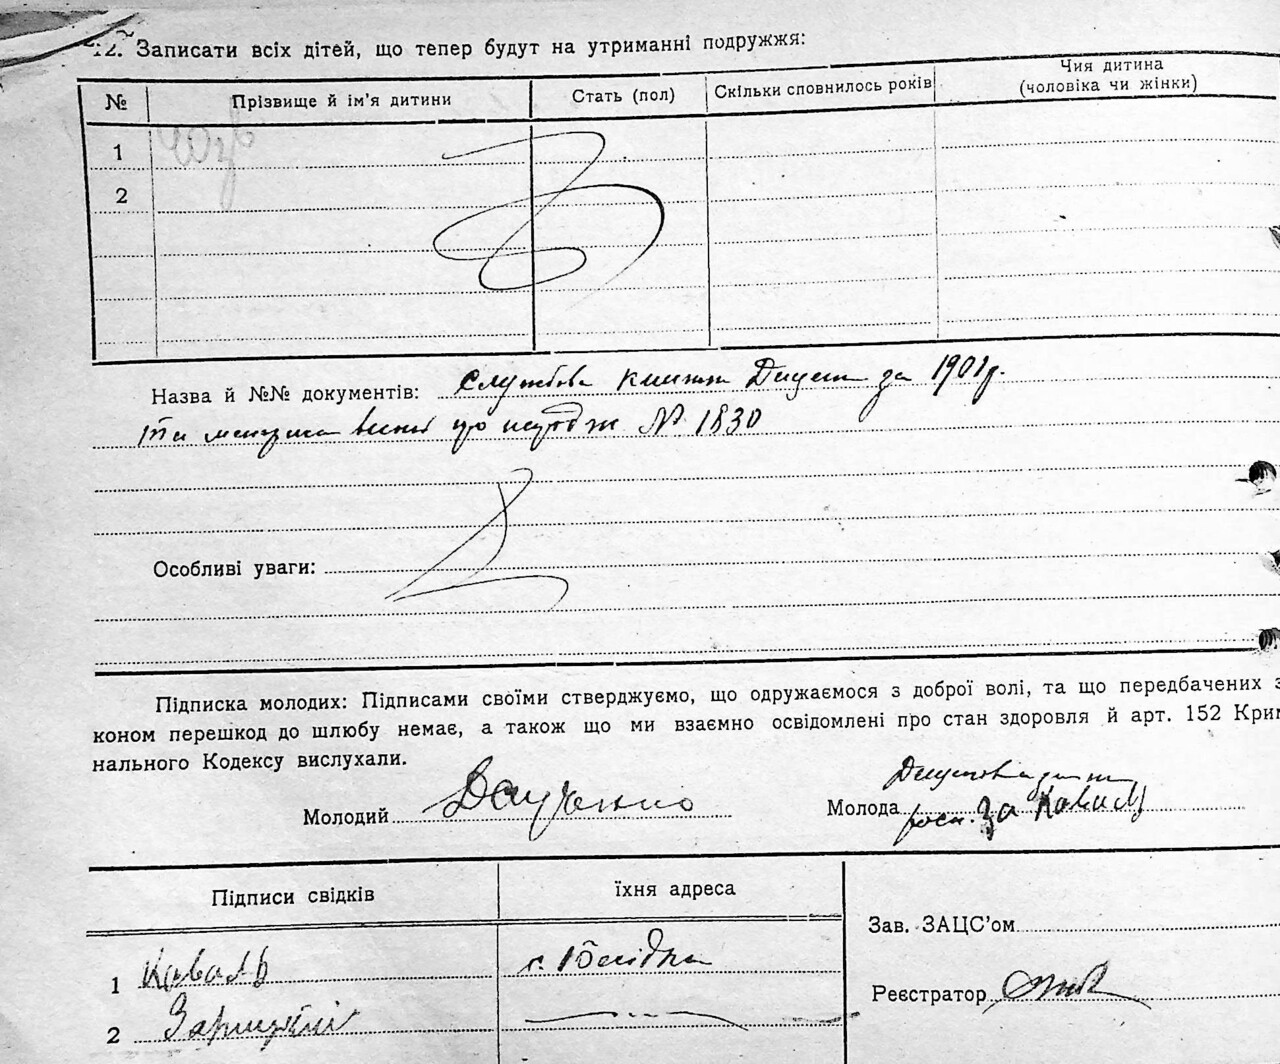 12. Записати всіх дітей, що тепер будут на утриманні подружжя:
№ Прізвище й ім'я дитини Стать (пол) Скільки сповнилось років Чия дитина (чоловіка чи жінки)
1
2
Назва й №№ документів: Службова за 1901 р.
та про № 1830
Особливі уваги:
Підписка молодих: Підписами своїми стверджуємо, що одружаємося з доброї волі, та що передбачених з
коном перешкод до шлюбу немає, а також що ми взаємно освідомлені про стан здоровля й арт. 152 Крим
нального Кодексу вислухали.
Молодий
Молода за
Підписи свідків їхня адреса
Зав. ЗАЦС'ом
1 Коваль
Реєстратор
2 Зарицкий